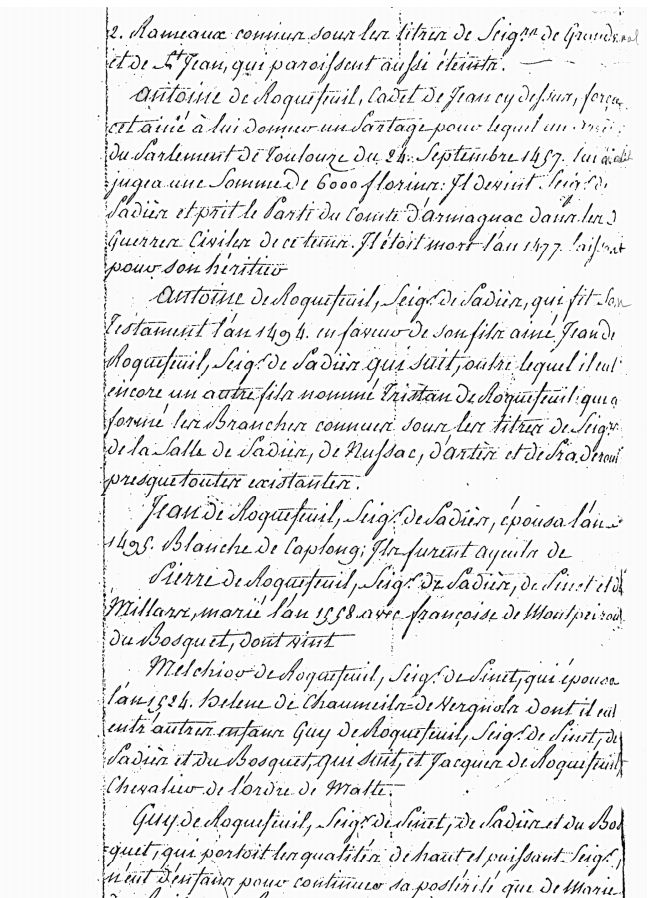 2. Rameaux connus sous les titres de Seig.rs de Grandval
et de S.t Jean, qui paroissent aussi éteints.
Antoine de Roquefeuil, Cadet de Jean cy dessus, força
cet ainé à lui donner un Partage pour lequel un
du Parlement de Toulouze du 24. Septembre 1457. lui
jugea une Somme de 6000 florins: Il devint Seig.r de
Padiès et prit le Parti du Comte d'armagnac dans les
Guerres Civiles de ce tems. Il étoit mort l'an 1477. laissant
pour son héritier
Antoine de Roquefeuil, Seig.r de Padiès, qui fit son
Testament l'an 1494. en faveur de son fils ainé, Jean de
Roquefeuil, Seig.r de Padiès qui suit, outre lequel il eut
encore un autre fils nommé Tristan de Roquefeuil qui a
formé les Branches connues sous les titres de Seig.rs
de la Salle de Padiès, de Nussac, d'artès et de
presque toutes existantes.
Jean de Roquefeuil, Seig.r de Padiès, épousa l'an
1495. Blanche de Caplong; Ils furent ayeuls de
Pierre de Roquefeuil, Seig.r de Padiès, de Pinet et de
Millars, marié l'an 1558 avec françoise de
du Bosquet, dont vint
Melchior de Roquefeuil, Seig.r de Pinet, qui épousa
l'an 1524. helene de Chaumeils de Vergnols dont il eut
entr'autres enfans Guy de Roquefeuil, Seig.r de Pinet, de
Padiès et du Bosquet, qui suit, et Jacques de Roquefeuil
Chevalier de l'ordre de Malte.
Guy de Roquefeuil, Seig.r de Pinet, de Padiès et du Bos
quet, qui portoit les qualités de haut et puissant Seig.r,
n'eut d'enfans pour continuer sa postérité que de Marie